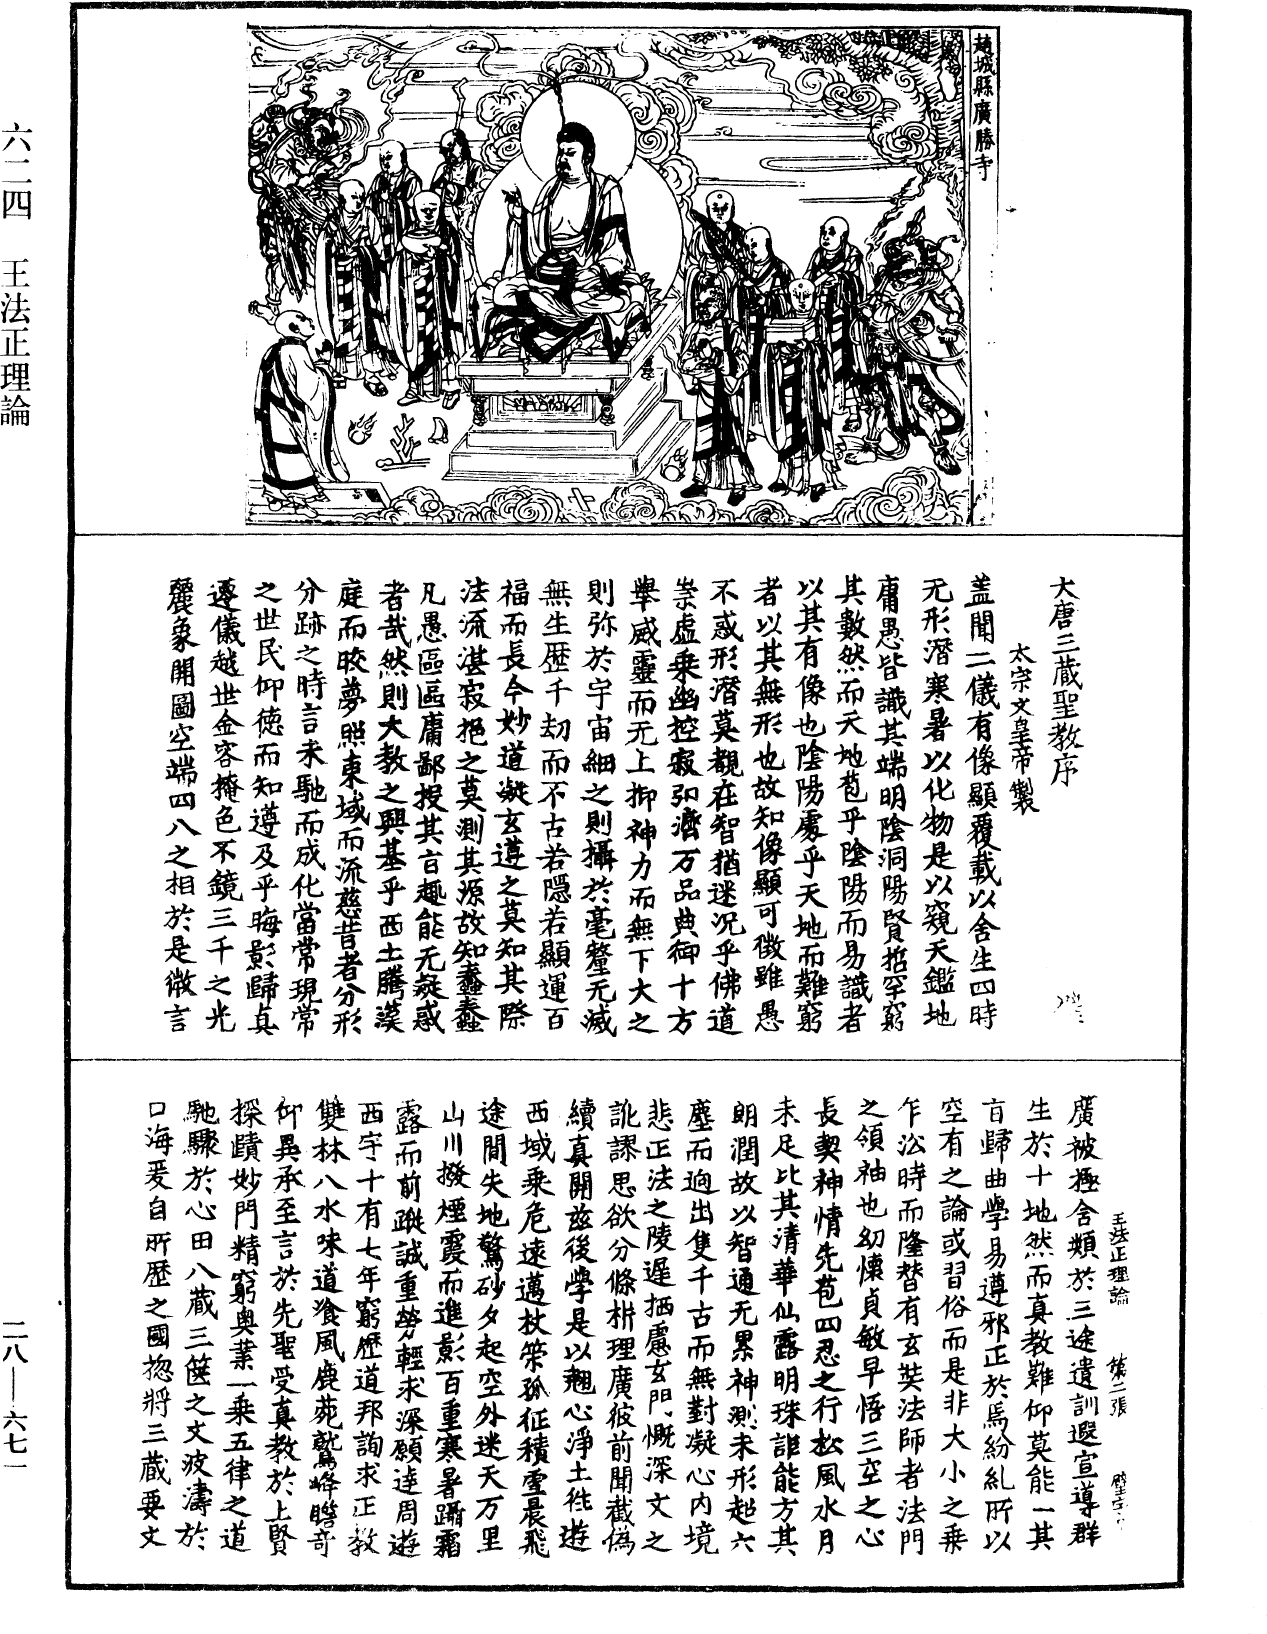 趙城縣廣勝寺
六二四　王法正理論
大唐三藏聖教序
太宗文皇帝製
盖聞二儀有像顯覆載以含生四時
无形潛寒暑以化物是以窺天鑑地
庸愚皆識其端明陰洞陽賢哲罕窮
其數然而天地苞乎陰陽而易識者
以其有像也陰陽處乎天地而難窮
者以其無形也故知像顯可徵雖愚
不惑形潛莫覩在智猶迷況乎佛道
崇虛乘幽控寂弘濟万品典御十方
舉威靈而无上抑神力而無下大之
則弥於宇宙細之則攝於毫釐无滅
無生歷千劫而不古若隱若顯運百
福而長今妙道凝玄遵之莫知其際
法流湛寂挹之莫測其源故知蠢蠢
凡愚區區庸鄙投其旨趣能无疑惑
者哉然則大教之興基乎西土騰漢
庭而晈夢照東域而流慈昔者分形
分跡之時言未馳而成化當常現常
之世民仰德而知遵及乎晦影歸真
遷儀越世金容掩色不鏡三千之光
麗象開圖空端四八之相於是微言
廣被拯含類於三途遺訓遐宣導群
生於十地然而真教難仰莫能一其
旨歸曲學易遵邪正於焉紛糺所以
空有之論或習俗而是非大小之乘
乍沿時而隆替有玄奘法師者法門
之領袖也幼懷貞敏早悟三空之心
長契神情先苞四忍之行松風水月
未足比其清華仙露明珠詎能方其
朗潤故以智通无累神測未形超六
塵而逈出隻千古而無對凝心内境
悲正法之陵遲栖慮玄門慨深文之
訛謬思欲分條枏理廣彼前聞截偽
續真開茲後學是以翹心淨土往遊
西域乘危遠邁杖策孤征積雪晨飛
途閒失地驚砂夕起空外迷天万里
山川撥煙霞而進影百重寒暑躡霜
露而前蹤誠重勞輕求深願達周遊
西宇十有七年窮歷道邦詢求正教
雙林八水味道飡風鹿菀鷲峰瞻奇
仰異承至言於先聖受真教於上賢
探賾妙門精窮奥業一乘五律之道
馳驟於心田八藏三篋之文波濤於
口海爰自所歷之國揔將三藏要文
王法正理論　第二張
二八—六七一